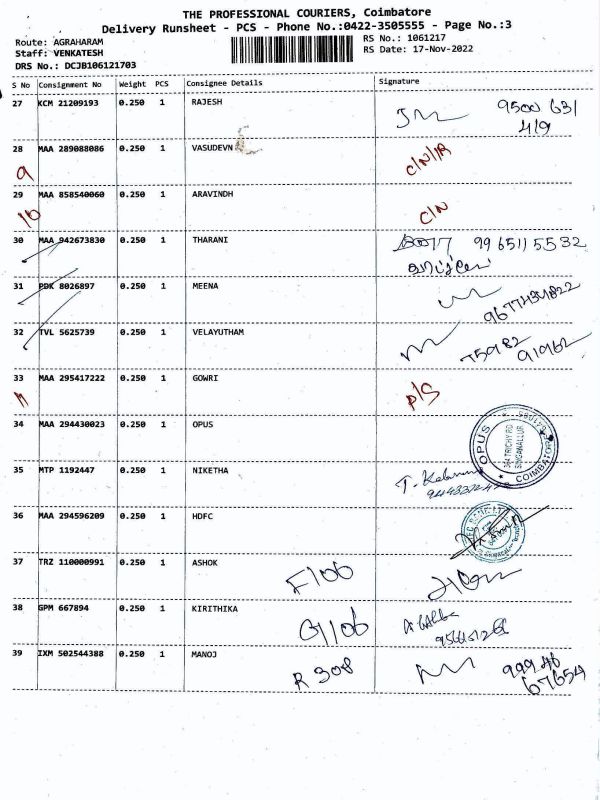 THE PROFESSIONAL COURIERS, Coimbatore
Delivery Runsheet - PCS - Phone No.:0422-3505555 - Page No.:3
Route: AGRAHARAM
RS No.: 1061217
Staff: VENKATESH
RS Date: 17-Nov-2022
DRS No.: DCJB106121703
S No Consignment No Weight PCS Consignee Details Signature
27 KCM 21209193 0.250 1 RAJESH 9500 631
419
28 MAA 289088086 0.250 1 VASUDEVN C/N/R
9
29 MAA 858540060 0.250 1 ARAVINDH C/N
10
30 MAA 942673830 0.250 1 THARANI 9965115532
31 PDK 8026897 0.250 1 MEENA
32 TVL 5625739 0.250 1 VELAYUTHAM 75982
91962
33 MAA 295417222 0.250 1 GOWRI P/S
11
34 MAA 294430023 0.250 1 OPUS OPUS
TRICHY RD
SINGANALLUR
COIMBATORE
35 MTP 1192447 0.250 1 NIKETHA
36 MAA 294596209 0.250 1 HDFC
37 TRZ 110000991 0.250 1 ASHOK F106
38 GPM 667894 0.250 1 KIRITHIKA G1106
39 IXM 502544388 0.250 1 MANOJ R 308 99946
67654